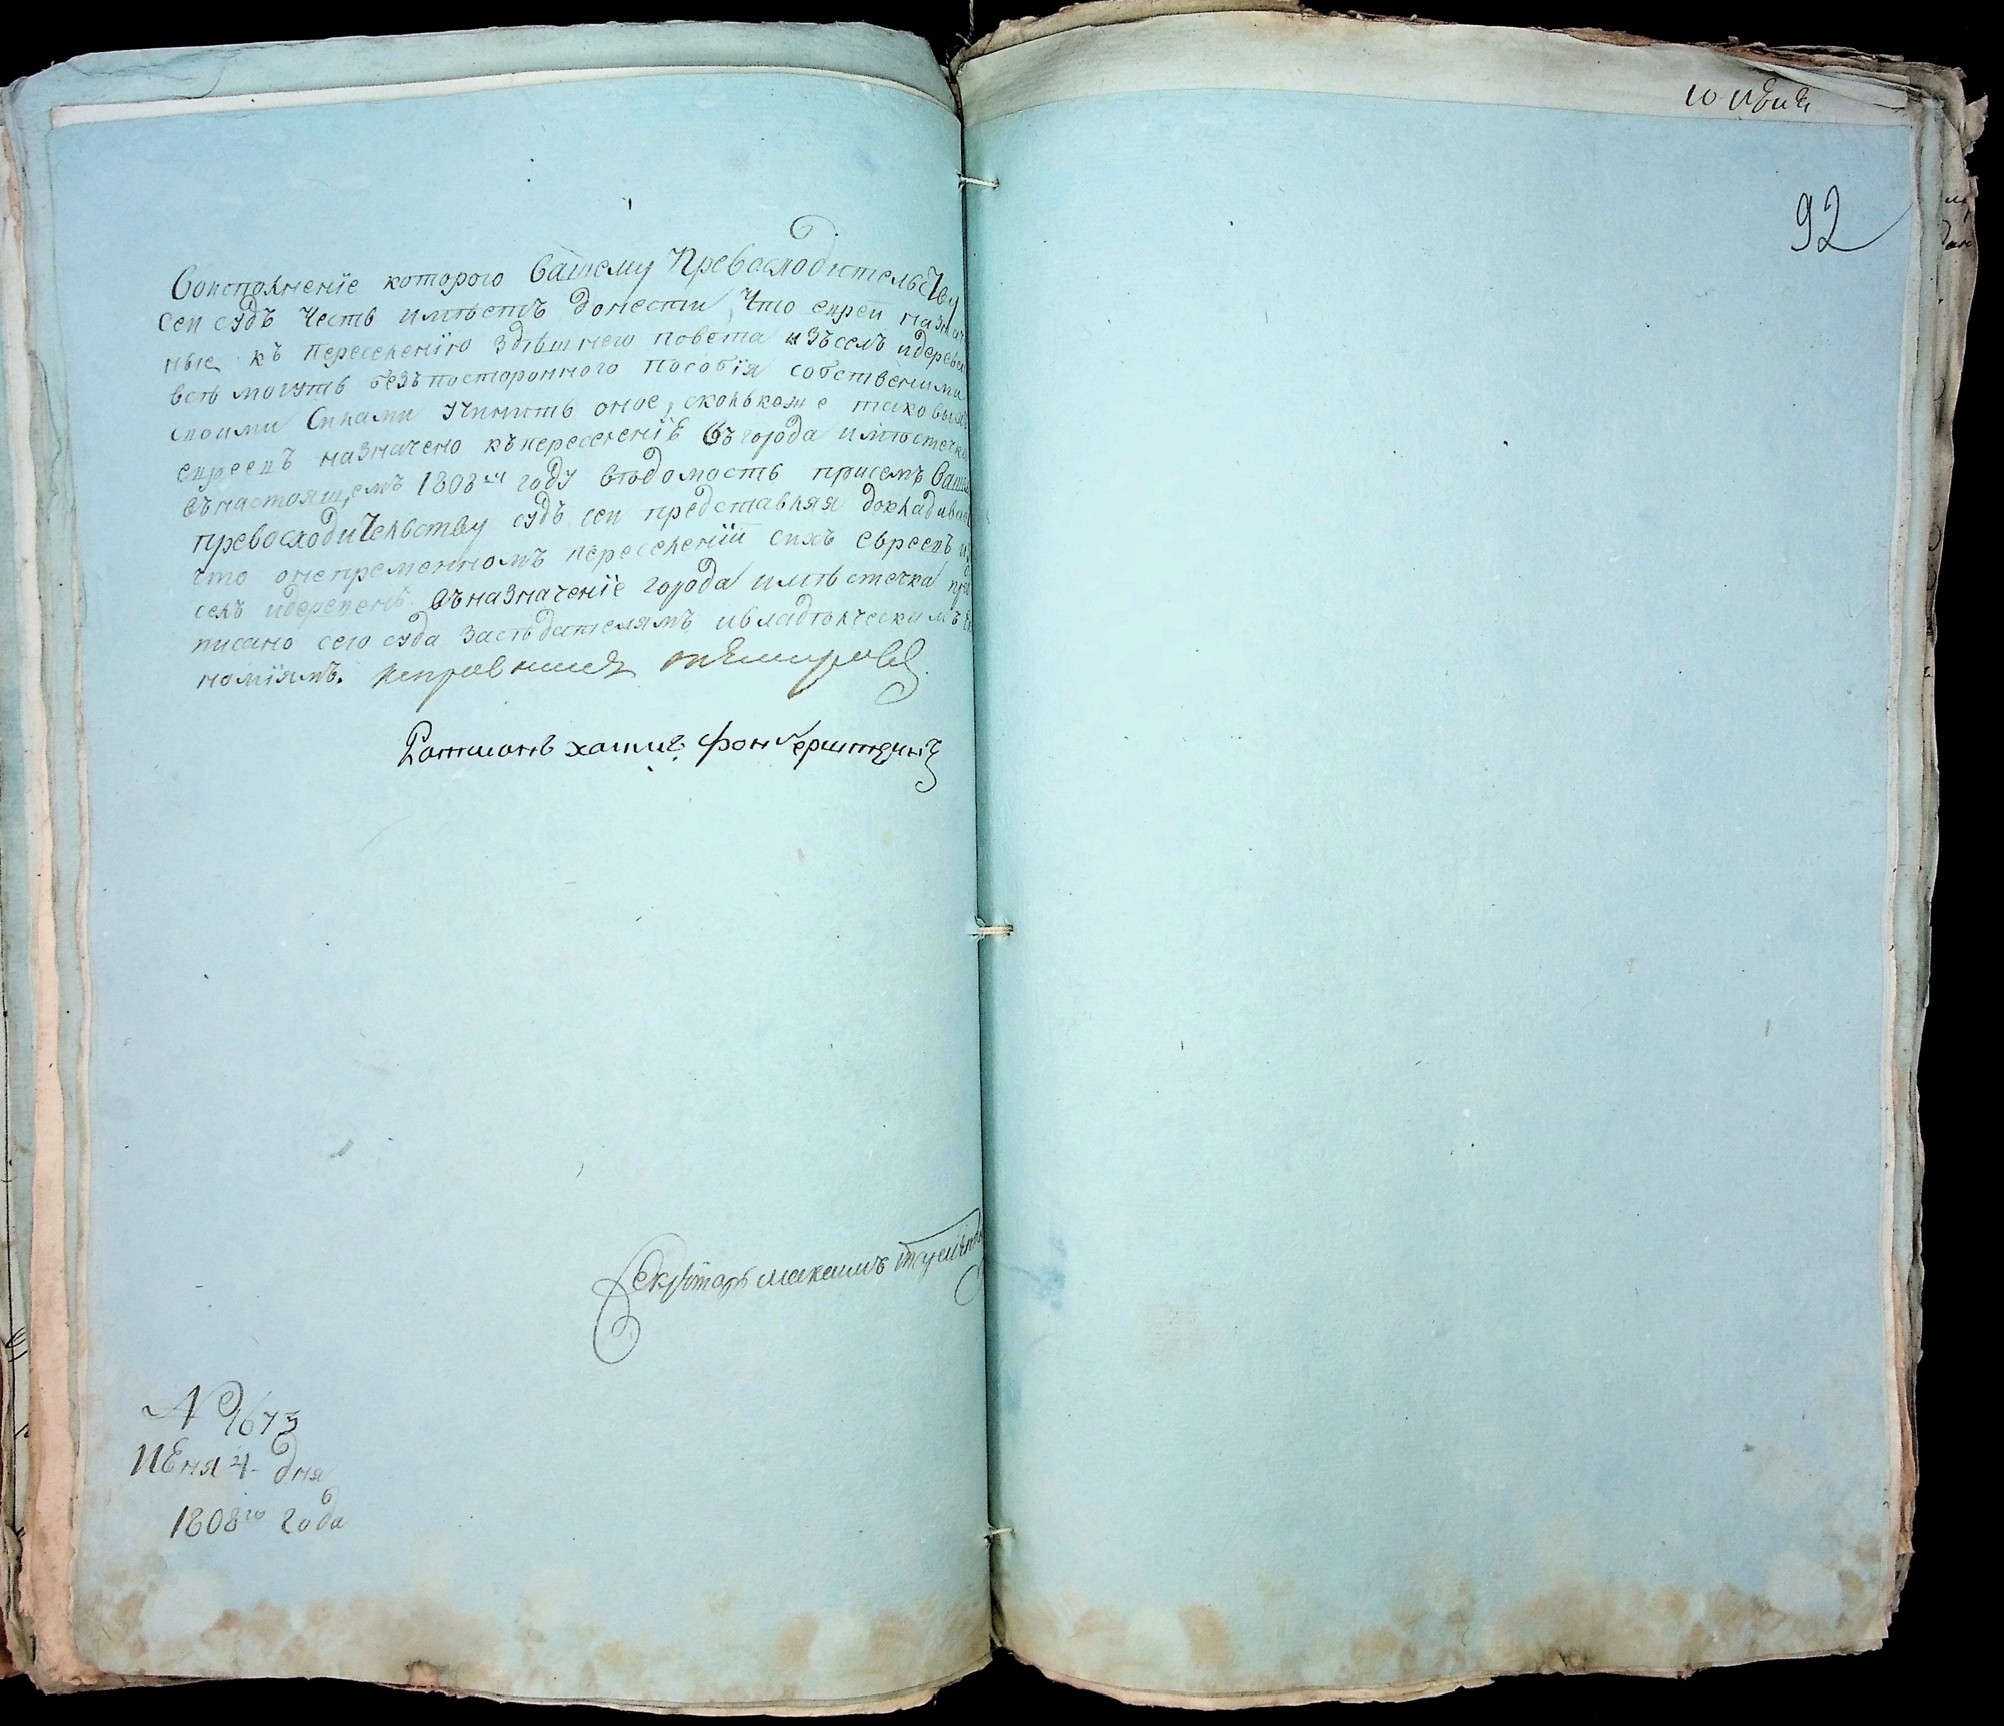 Воисполненіе которого Вашему Превосходительству
сей судъ честь имѣетъ донести, что евреи назначе
ные къ переселенію здѣшнего повета изъселъ идеревень
всѣ могутъ безъпосторонного пособія собственими
своими силами учинить оное, сколькоже таковыхъ
евреевъ назначено къпереселеніе въгорода имѣстечка
вънастоящемъ 1808мъ году вѣдомость присемъ Вашему
превосходительству судъ сей представляя докладиваетъ
что онепременномъ переселеніи сихъ евреевъ изъ
селъ идеревень въназначеніе города имѣстечка пред
писано сего суда засѣдателямъ ивладѣлческимъ еко
номіямъ. исправникъ
Ратманъ хаимъ фонъ
Секретарь максимъ
№ 1673
Иеня 4. дня
1808го года
92